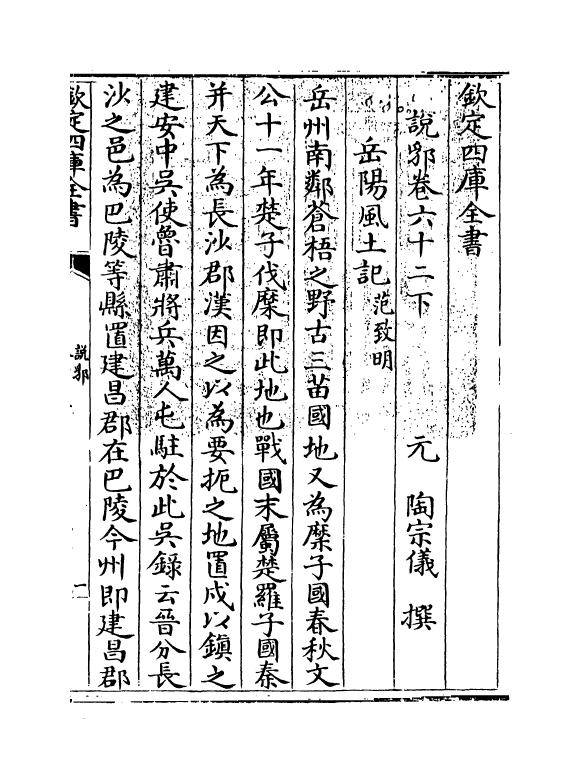 欽定四庫全書
說郛卷六十二下
元 陶宗儀 撰
岳陽風土記 范致明
岳州南鄰蒼梧之野古三苗國地又為麋子國春秋文
公十一年楚子伐麋即此地也戰國末屬楚羅子國秦
并天下為長沙郡漢因之以為要扼之地置戍以鎮之
建安中吳使魯肅將兵萬人屯駐於此吳錄云晉分長
沙之邑為巴陵等縣置建昌郡在巴陵今州即建昌郡
欽定四庫全書
說郛
一